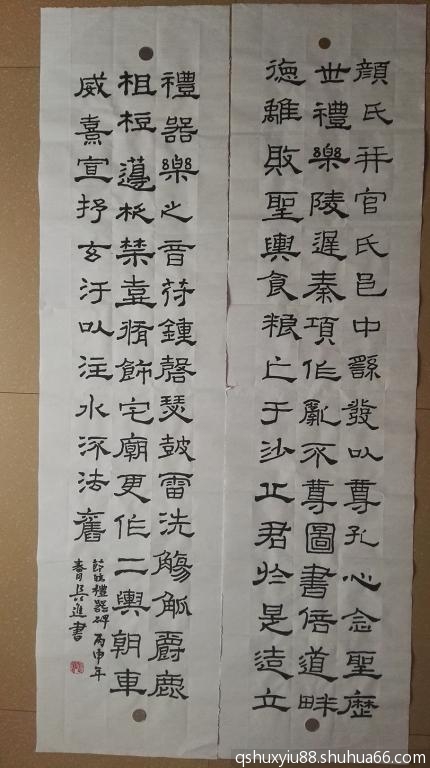 顏氏并官氏邑中繇發以尊孔心念聖歷
世禮樂陵遲秦項作亂不尊圖書倍道畔
德離敗聖輿食粮亡于沙丘君於是造立
禮器樂之音苻鍾磬瑟鼓雷洗觴觚爵鹿
柤梪籩柉禁壺脩飾宅廟更作二輿朝車
威熹宣抒玄汙以注水流法舊
節臨禮器碑 丙申年
春月吳進書
qshuxyiu88.shuhua66.com